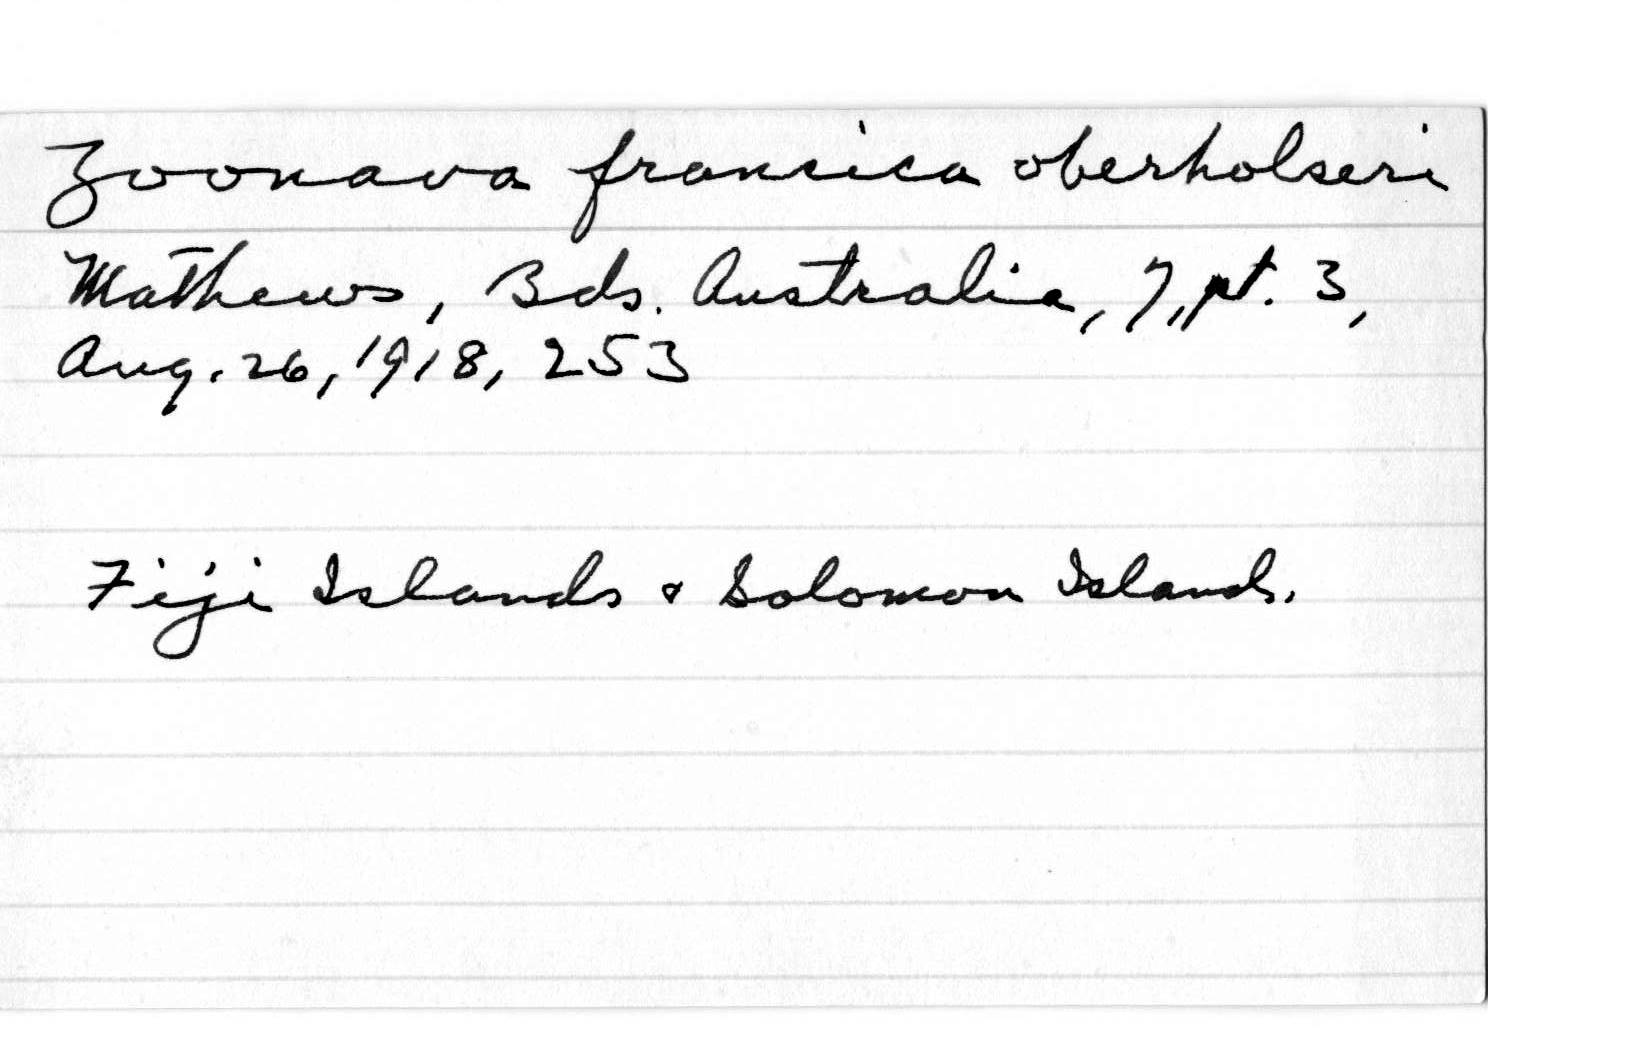 Zoonava francica oberholseri
Mathews, Bds. Australia, 7, pt. 3,
Aug. 26, 1918, 253
Fiji Islands & Solomon Islands.